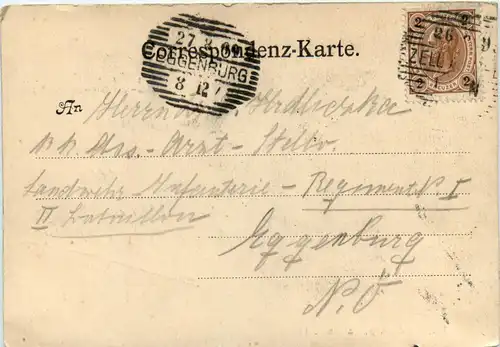 Correspondenz-Karte.
27
EGGENBURG
8 12
2 2
26 9
ZELL
2
An Herrn Hrdliczka
k k Ass. Arzt-Stellv.
Landwehr Infanterie- Regiment N I
II Bataillon
Eggenburg
N. Ö